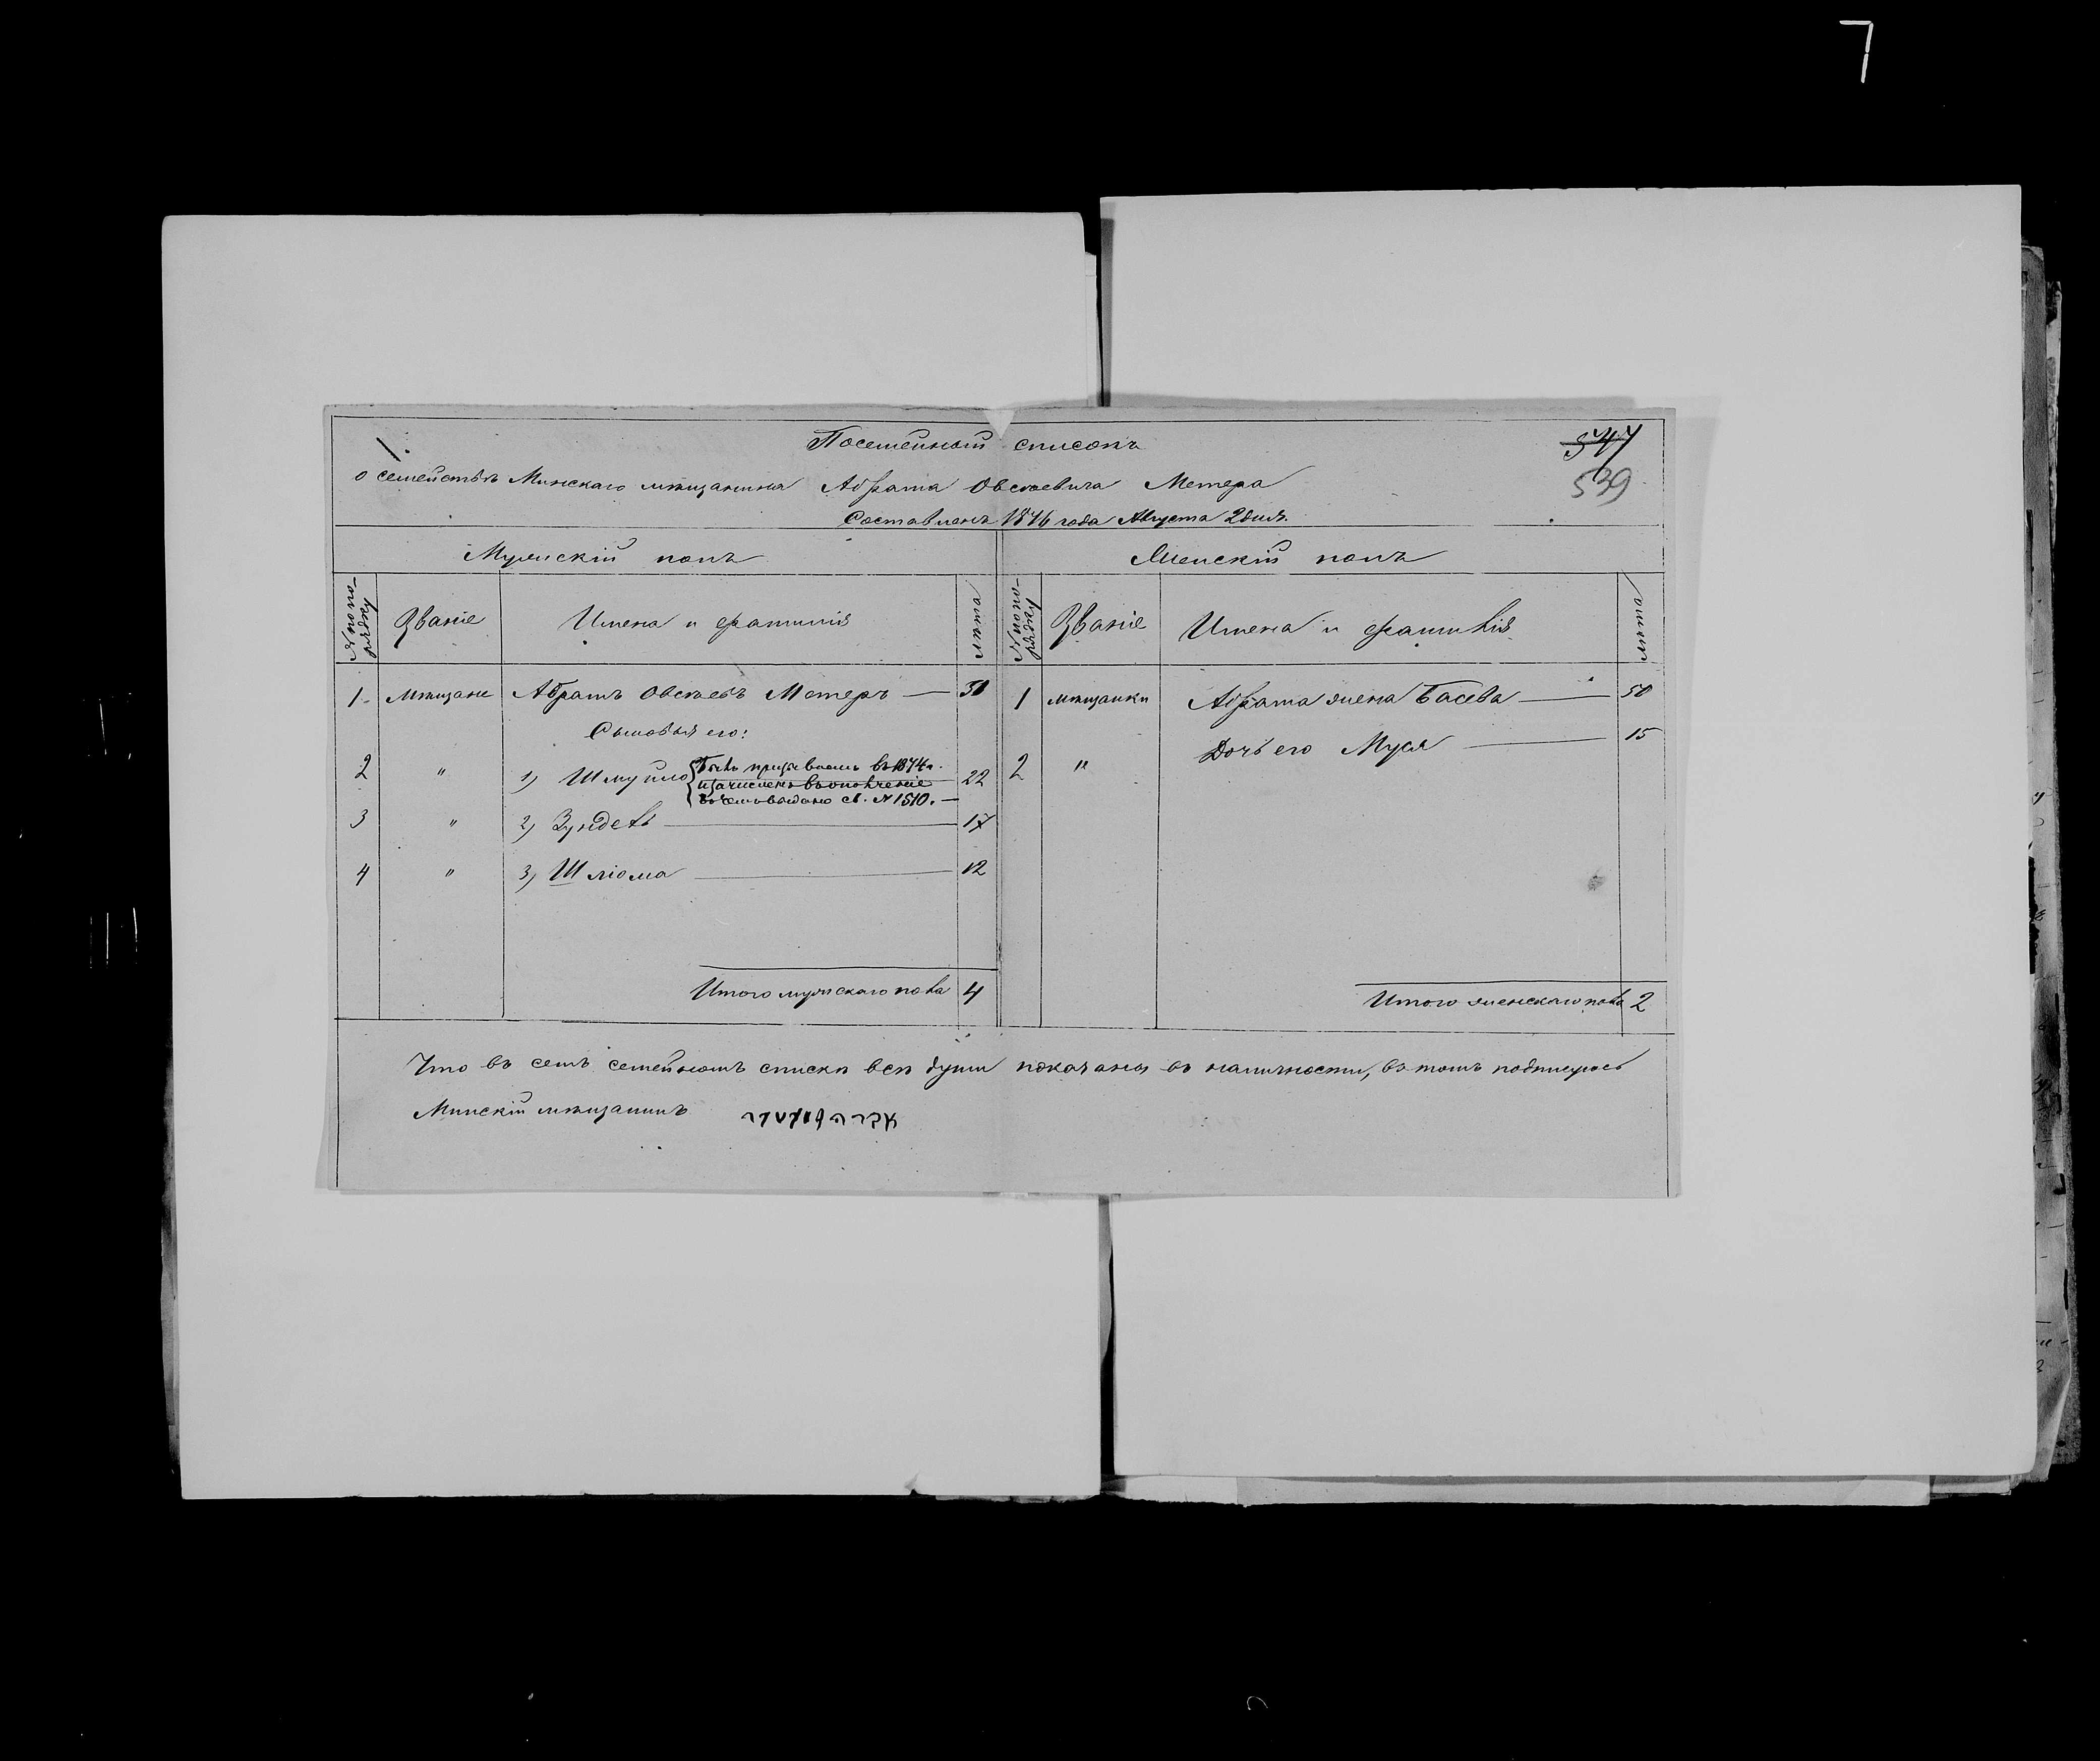 7
1.
Посемейный списокъ
547
539
о семействѣ Минскаго мѣщанина Абрама Овсѣевича Метера
Составленъ 1876 года Августа 2 дня.
Мужскій полъ
Женскій полъ
№ по по-
рядку
Званіе
Имена и фамилія
лѣта
№ по по-
рядку
Званіе
Имена и фамилія
лѣта
1. Мѣщане Абрамъ Овсѣевъ Метеръ — 50
Сыновья его:
2 " 1) Шмуйло { Былъ призываемъ въ 1874 г.
и зачисленъ въ ополченіе 22
въ чемъ выдано св. № 1510. —
3 " 2) Зундель — 17
4 " 3) Шліома — 12
Итого мужскаго пола 4
1 мѣщанки Абрама жена Басева — 50
2 " Дочь его Муся — 15
Итого женскаго пола 2
Что въ семъ семейномъ списке все души показаны въ наличности, въ томъ подпишусь
Минскій мѣщанинъ